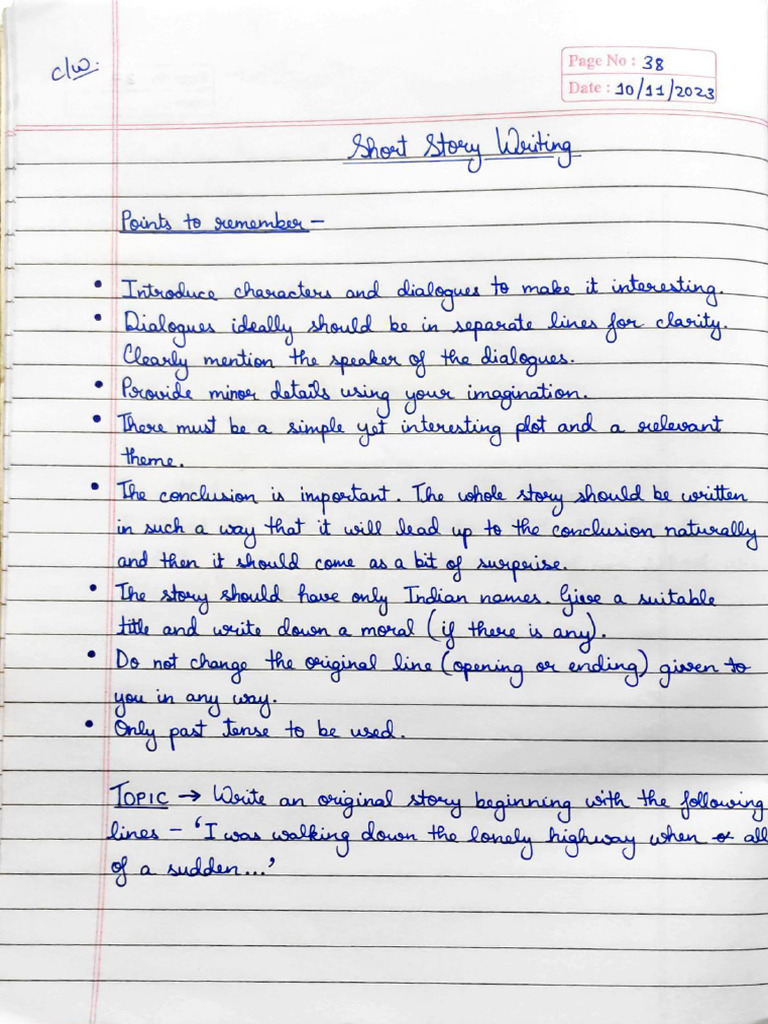 c/w.
Page No : 38
Date : 10/11/2023
Short Story Writing
Points to remember –
• Introduce characters and dialogues to make it interesting.
• Dialogues ideally should be in separate lines for clarity.
Clearly mention the speaker of the dialogues.
• Provide minor details using your imagination.
• There must be a simple yet interesting plot and a relevant
theme.
• The conclusion is important. The whole story should be written
in such a way that it will lead up to the conclusion naturally
and then it should come as a bit of surprise.
• The story should have only Indian names. Give a suitable
title and write down a moral (if there is any).
• Do not change the original line (opening or ending) given to
you in any way.
• Only past tense to be used.
TOPIC → Write an original story beginning with the following
lines – 'I was walking down the lonely highway when all
of a sudden...'